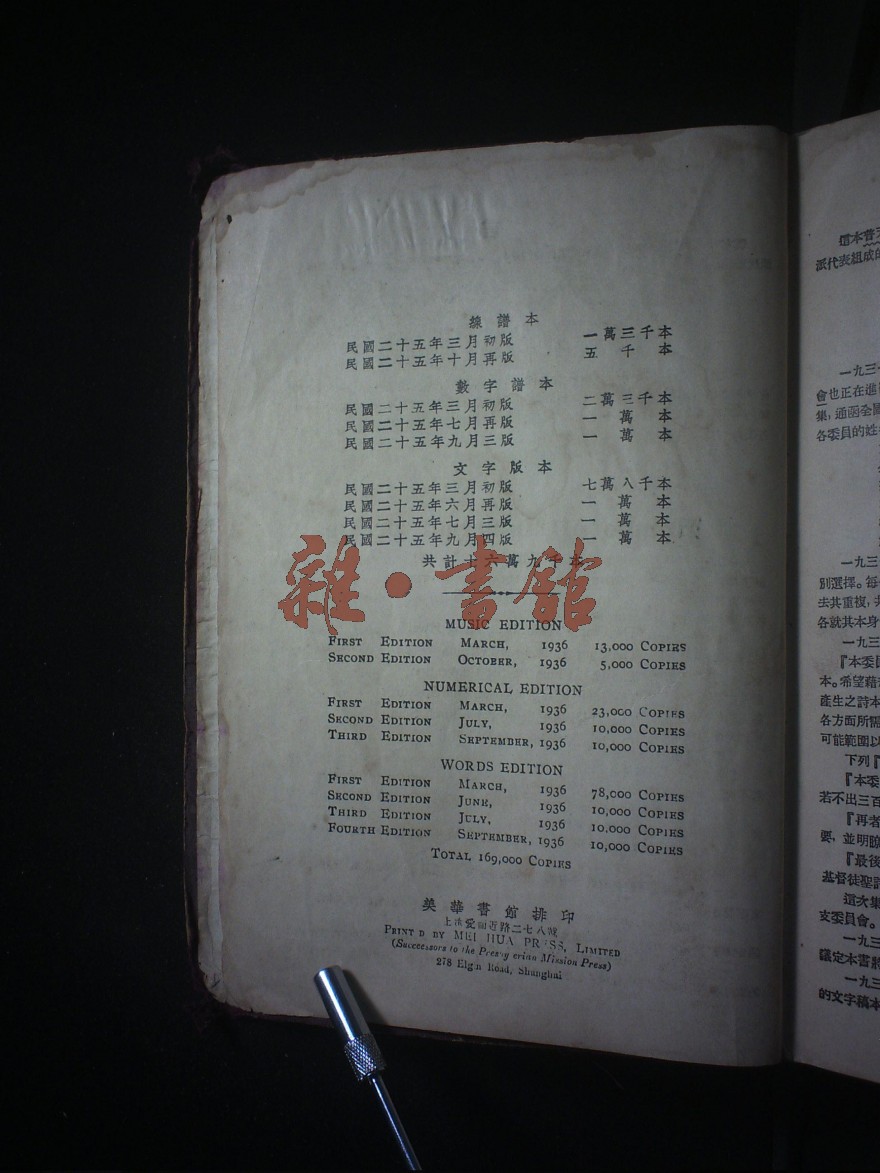 線譜本
民國二十五年三月初版 一萬三千本
民國二十五年十月再版 五千本
數字譜本
民國二十五年三月初版 二萬三千本
民國二十五年七月再版 一萬本
民國二十五年九月三版 一萬本
文字版本
民國二十五年三月初版 七萬八千本
民國二十五年六月再版 一萬本
民國二十五年七月三版 一萬本
民國二十五年九月四版 一萬本
共計十六萬九千本
雜·書館
MUSIC EDITION
FIRST EDITION MARCH, 1936 13,000 COPIES
SECOND EDITION OCTOBER, 1936 5,000 COPIES
NUMERICAL EDITION
FIRST EDITION MARCH, 1936 23,000 COPIES
SECOND EDITION JULY, 1936 10,000 COPIES
THIRD EDITION SEPTEMBER, 1936 10,000 COPIES
WORDS EDITION
FIRST EDITION MARCH, 1936 78,000 COPIES
SECOND EDITION JUNE, 1936 10,000 COPIES
THIRD EDITION JULY, 1936 10,000 COPIES
FOURTH EDITION SEPTEMBER, 1936 10,000 COPIES
TOTAL 169,000 COPIES
美華書館排印
上海愛而近路二七八號
PRINTED BY MEI HUA PRESS, LIMITED
(Successors to the Presbyterian Mission Press)
278 Elgin Road, Shanghai
這本普天
派代表組成的
一九三一
會也正在進
集,通函全國
各委員的姓
一九三
別選擇。每
去其重複,共
各就其本身
一九三
『本委員
本。希望藉
產生之詩本
各方面所需
可能範圍以
下列『
『本委
若不出三百
『再者
要,並明瞭
『最後
基督徒聖詩
這次集
支委員會。
一九三
議定本書將
一九三
的文字稿本